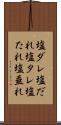 塩ダレ塩だ
れ塩タレ塩
たれ塩垂れ